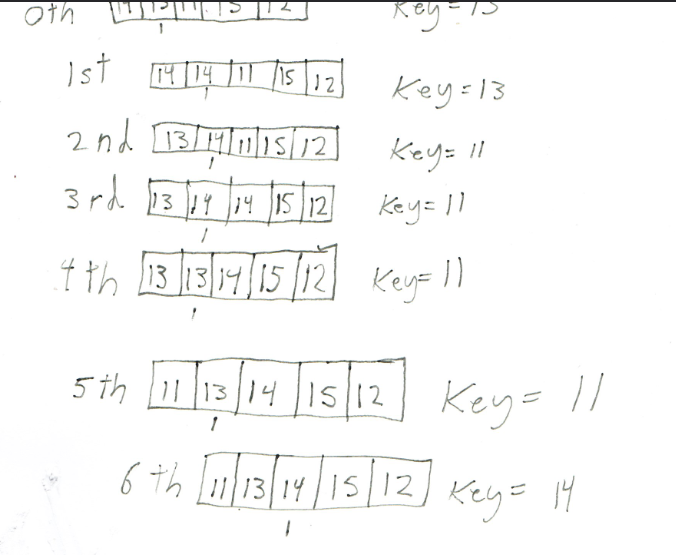 0th 14 13 11 15 12 Key=13
1st 14 14 11 15 12 Key=13
2nd 13 14 11 15 12 Key= 11
3rd 13 14 14 15 12 Key= 11
4th 13 13 14 15 12 Key= 11
5th 11 13 14 15 12 Key= 11
6th 11 13 14 15 12 Key= 14